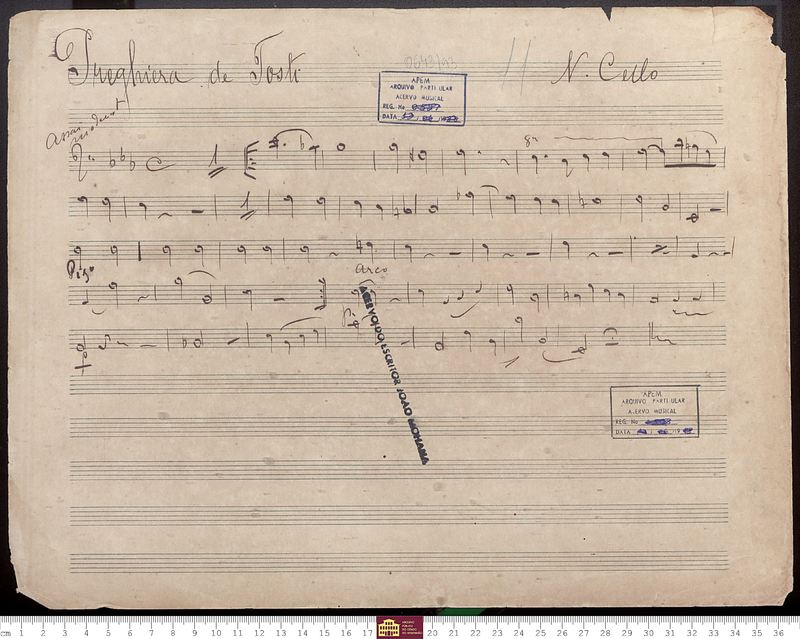 Preghiera de Tosti
V. Cello
0643/93
APEM
ARQUIVO PARTICULAR
ACERVO MUSICAL
REG. No
DATA
Assai moderato
8ª
Pizº
arco
Pizº
ACERVO DO ESCRITOR JOÃO MOHANA
APEM
ARQUIVO PARTICULAR
ACERVO MUSICAL
REG. No
DATA
cm 1 2 3 4 5 6 7 8 9 10 11 12 13 14 15 16 17 20 21 22 23 24 25 26 27 28 29 30 31 32 33 34 35 36